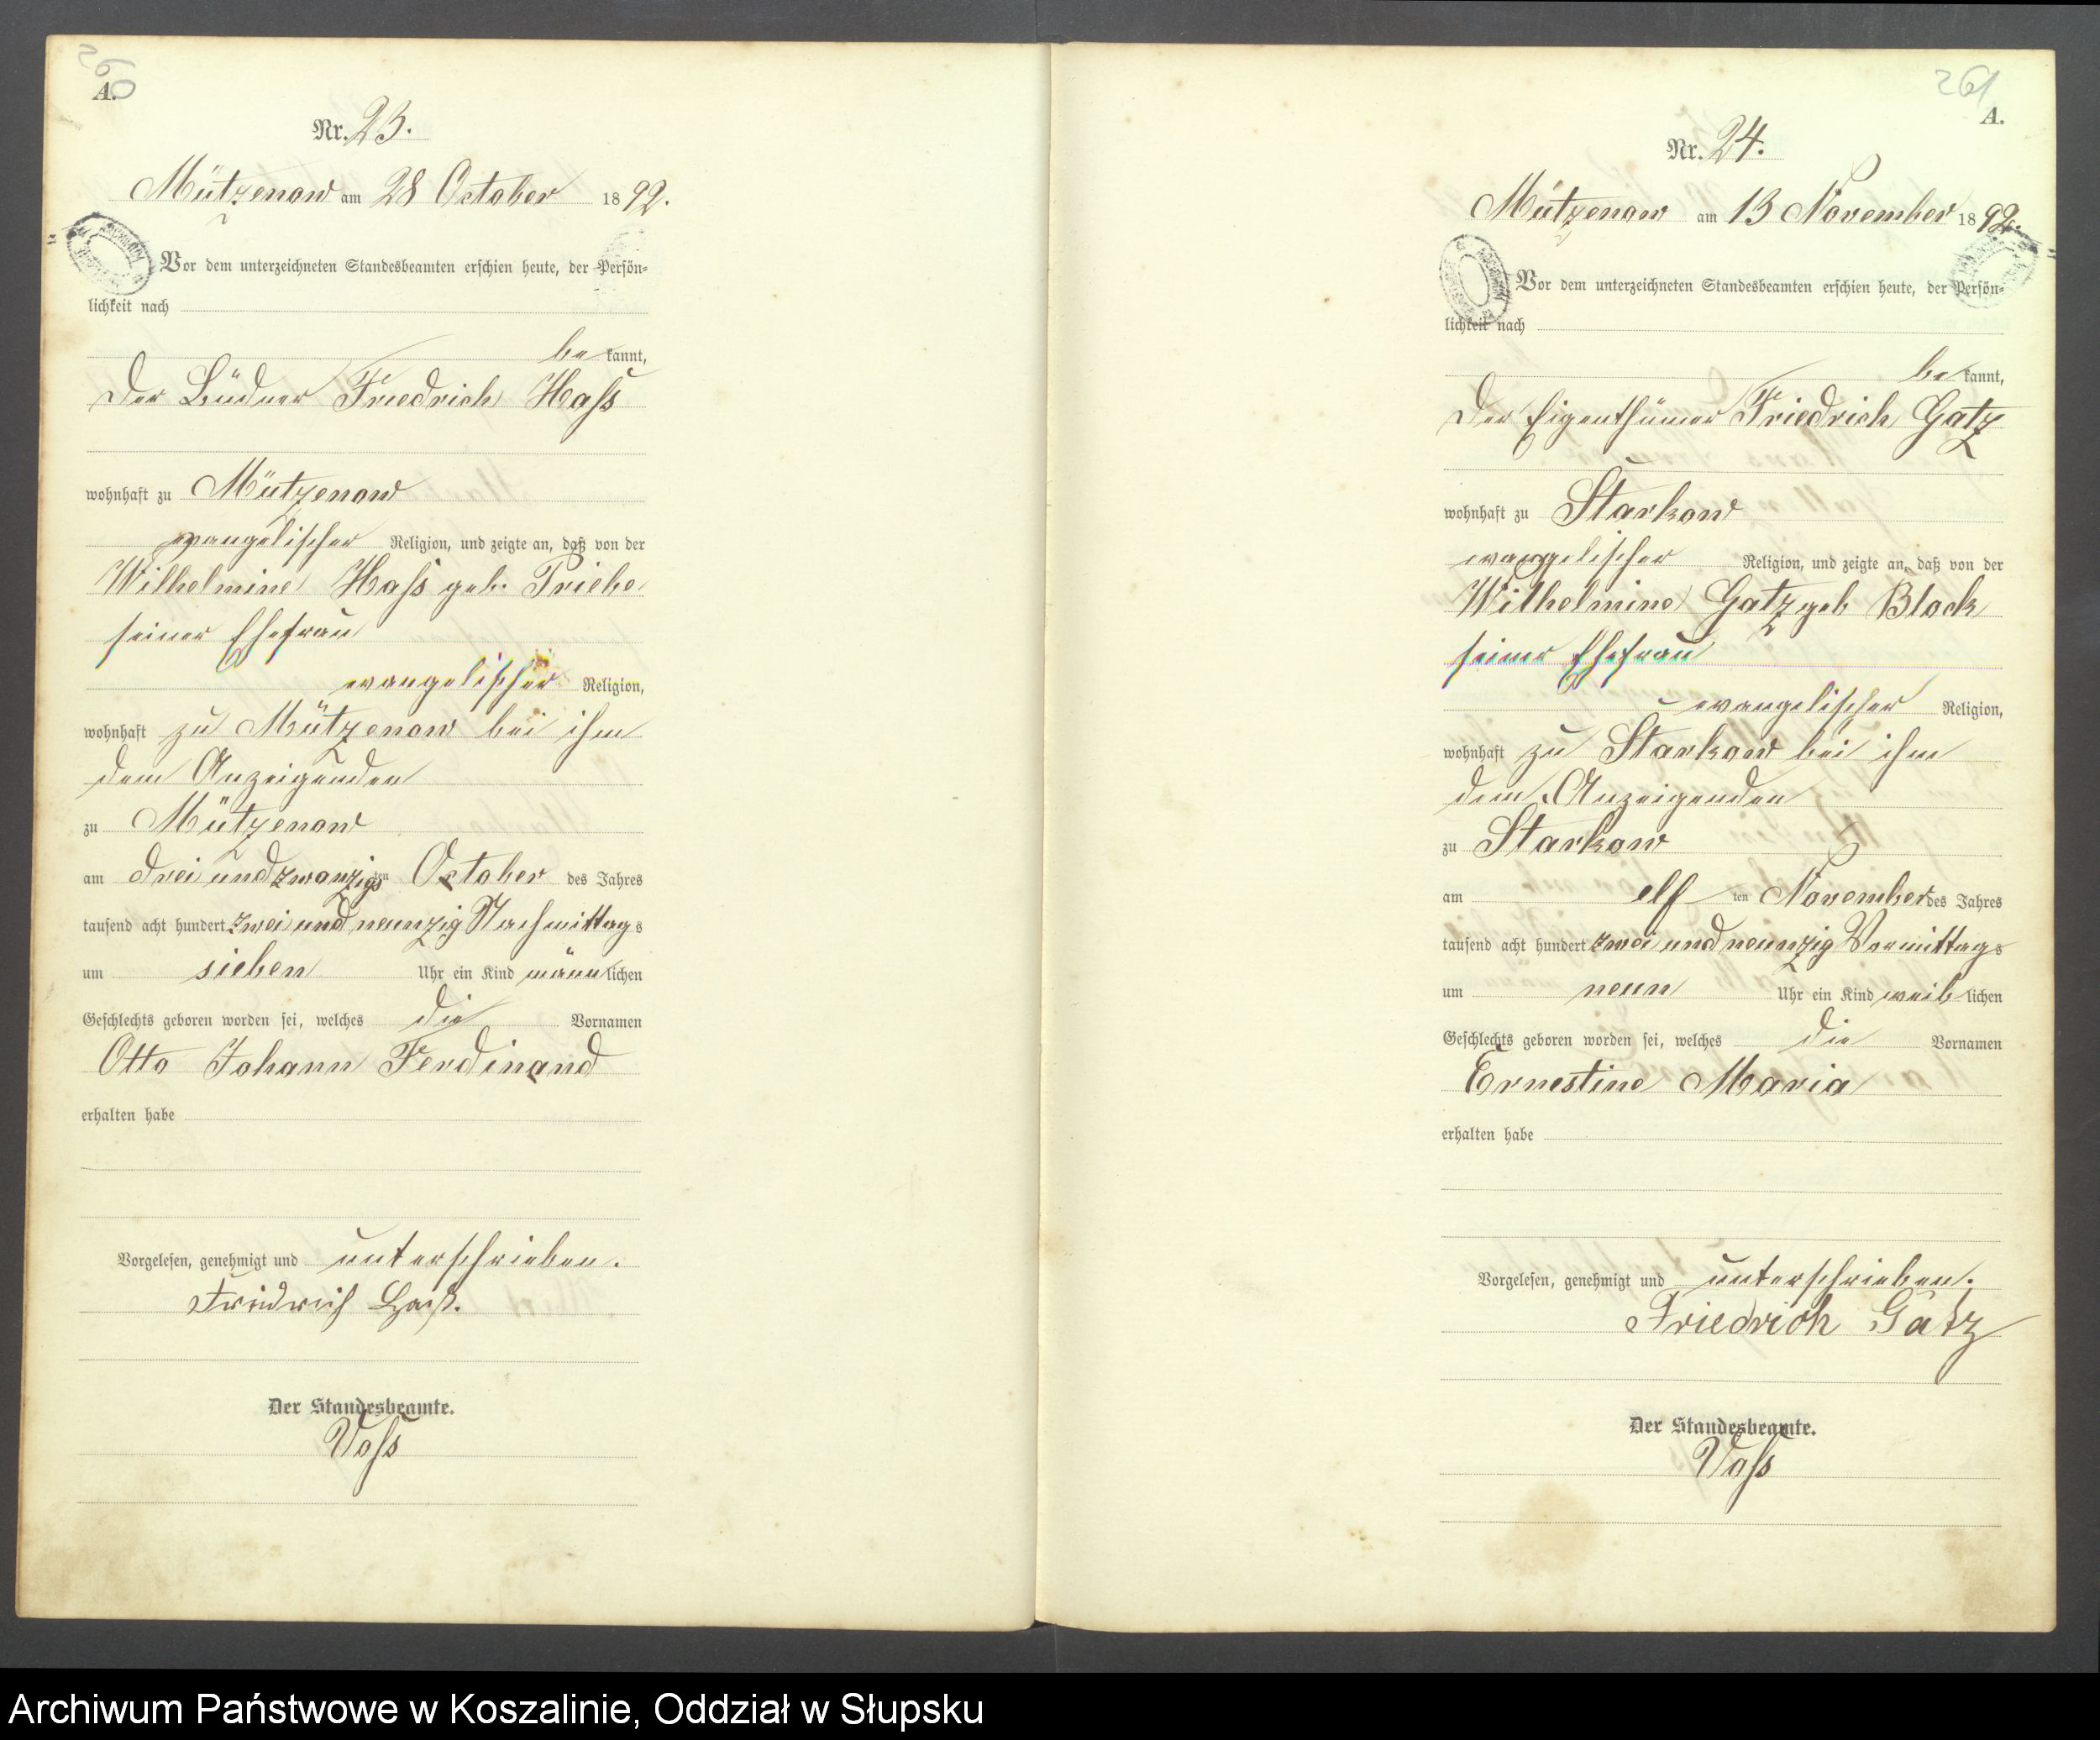 260
A.
Nr. 23.
Mützenow am 28 October 1892.
Vor dem unterzeichneten Standesbeamten erschien heute, der Persön-
lichkeit nach
bekannt,
der Büdner Friedrich Hass
wohnhaft zu Mützenow
evangelischer Religion, und zeigte an, daß von der
Wilhelmine Hass geb. Priebe
seiner Ehefrau
evangelischer Religion,
wohnhaft zu Mützenow bei ihm
dem Anzeigenden
zu Mützenow
am drei und zwanzigsten October des Jahres
tausend acht hundert zwei und neunzig Nachmittags
um sieben Uhr ein Kind männlichen
Geschlechts geboren worden sei, welches die Vornamen
Otto Johann Ferdinand
erhalten habe
Vorgelesen, genehmigt und unterschrieben.
Friedrich Haß.
Der Standesbeamte.
Voss
261
A.
Nr. 24.
Mützenow am 13 November 1892.
Vor dem unterzeichneten Standesbeamten erschien heute, der Persön-
lichkeit nach
bekannt,
der Eigenthümer Friedrich Gatz
wohnhaft zu Starkow
evangelischer Religion, und zeigte an, daß von der
Wilhelmine Gatz geb Block
seiner Ehefrau
evangelischer Religion,
wohnhaft zu Starkow bei ihm
dem Anzeigenden
zu Starkow
am elf ten November des Jahres
tausend acht hundert zwei und neunzig Vormittags
um neun Uhr ein Kind weiblichen
Geschlechts geboren worden sei, welches die Vornamen
Ernestine Maria
erhalten habe
Vorgelesen, genehmigt und unterschrieben.
Friedrich Gatz
Der Standesbeamte.
Voss
Archiwum Państwowe w Koszalinie, Oddział w Słupsku